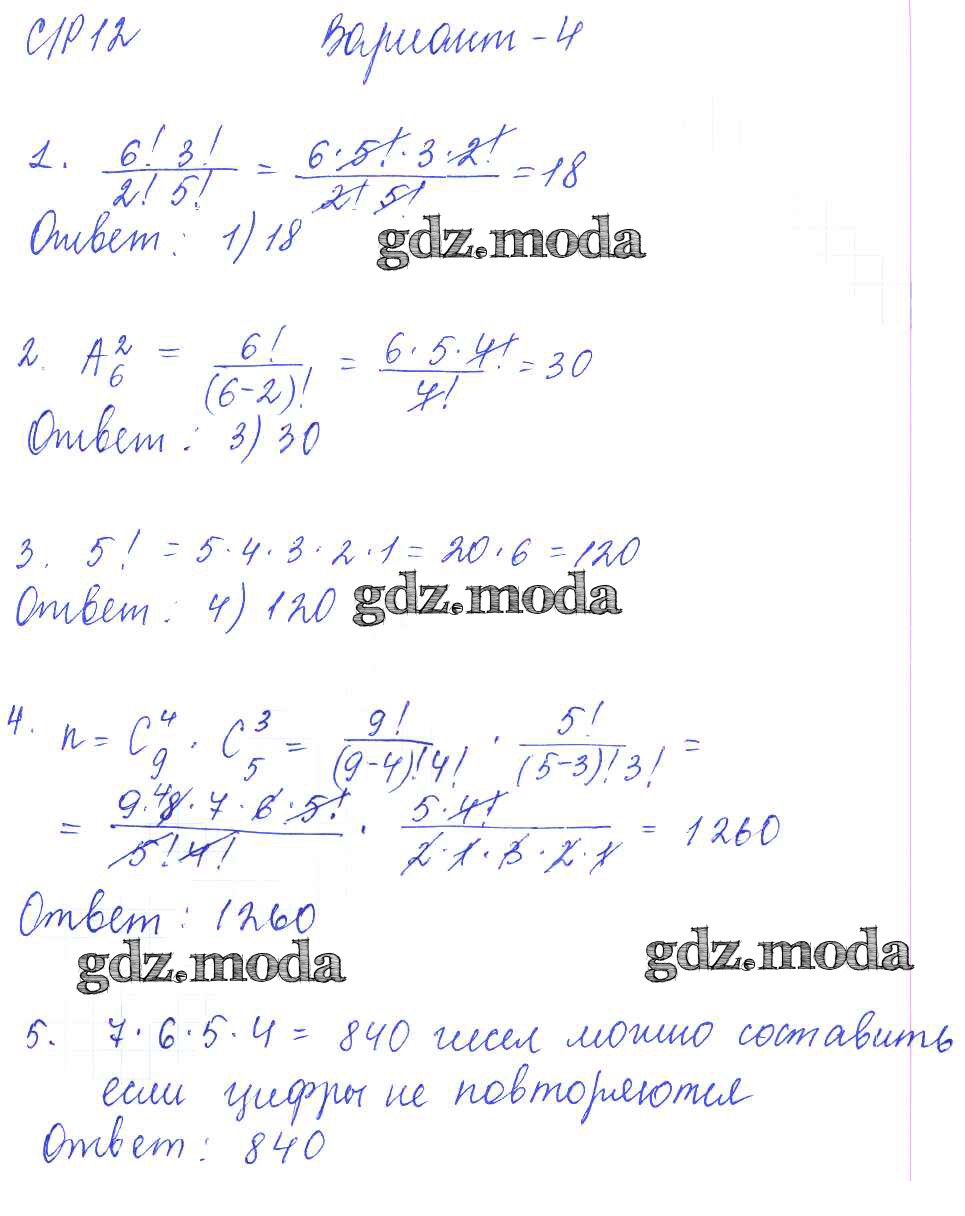 С/Р 12 Вариант - 4
1. 6! 3! / 2! 5! = 6·5!·3·2! / 2! 5! = 18
Ответ: 1) 18
gdz.moda
2. A₆² = 6! / (6-2)! = 6·5·4! / 4! = 30
Ответ: 3) 30
3. 5! = 5·4·3·2·1 = 20·6 = 120
Ответ: 4) 120 gdz.moda
4. n = C₉⁴ · C₅³ = 9! / (9-4)! 4! · 5! / (5-3)! 3! =
= 9·⁴8·7·6·5! / 5! 4! · 5·4! / 2·1·3·2·1 = 1260
Ответ: 1260
gdz.moda gdz.moda
5. 7·6·5·4 = 840 чисел можно составить
если цифры не повторяются
Ответ: 840